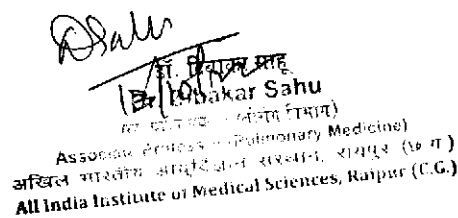 DSahu
डॉ. दिबाकर साहू
Dibakar Sahu
Associate Professor (Pulmonary Medicine)
अखिल भारतीय आयुर्विज्ञान संस्थान, रायपुर (छ ग)
All India Institute of Medical Sciences, Raipur (C.G.)